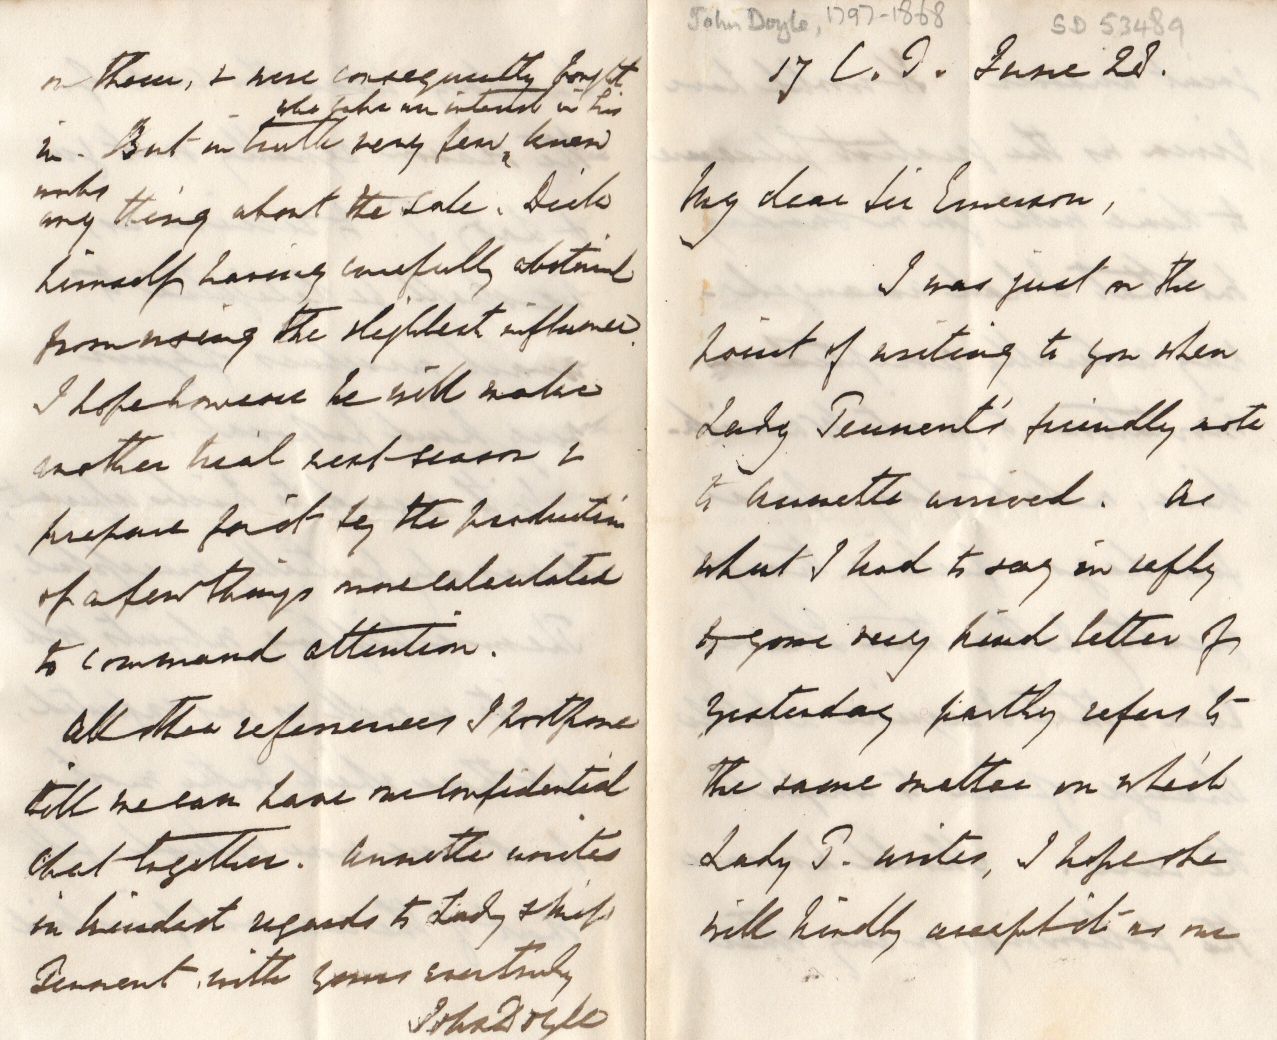 John Doyle, 1797-1868
SD 53489
17 C. T. June 28.
My dear Sir Emerson,
I was just on the
point of writing to you when
Lady Tennent's friendly note
to Annette arrived. As
what I had to say in reply
to your very kind letter of
yesterday partly refers to
the same matter on which
Lady T. writes, I hope she
will kindly accept it as one
on them, & were consequently bought
in. But in truth very few who take an interest in his
works knew
any thing about the sale. Dick
himself having carefully abstained
from using the slightest influence.
I hope however he will make
another trial next season &
prepare for it by the production
of a few things more calculated
to command attention.
All other references I postpone
till we can have one confidential
chat together. Annette unites
in kindest regards to Lady & Miss
Tennent with yours ever truly
John Doyle